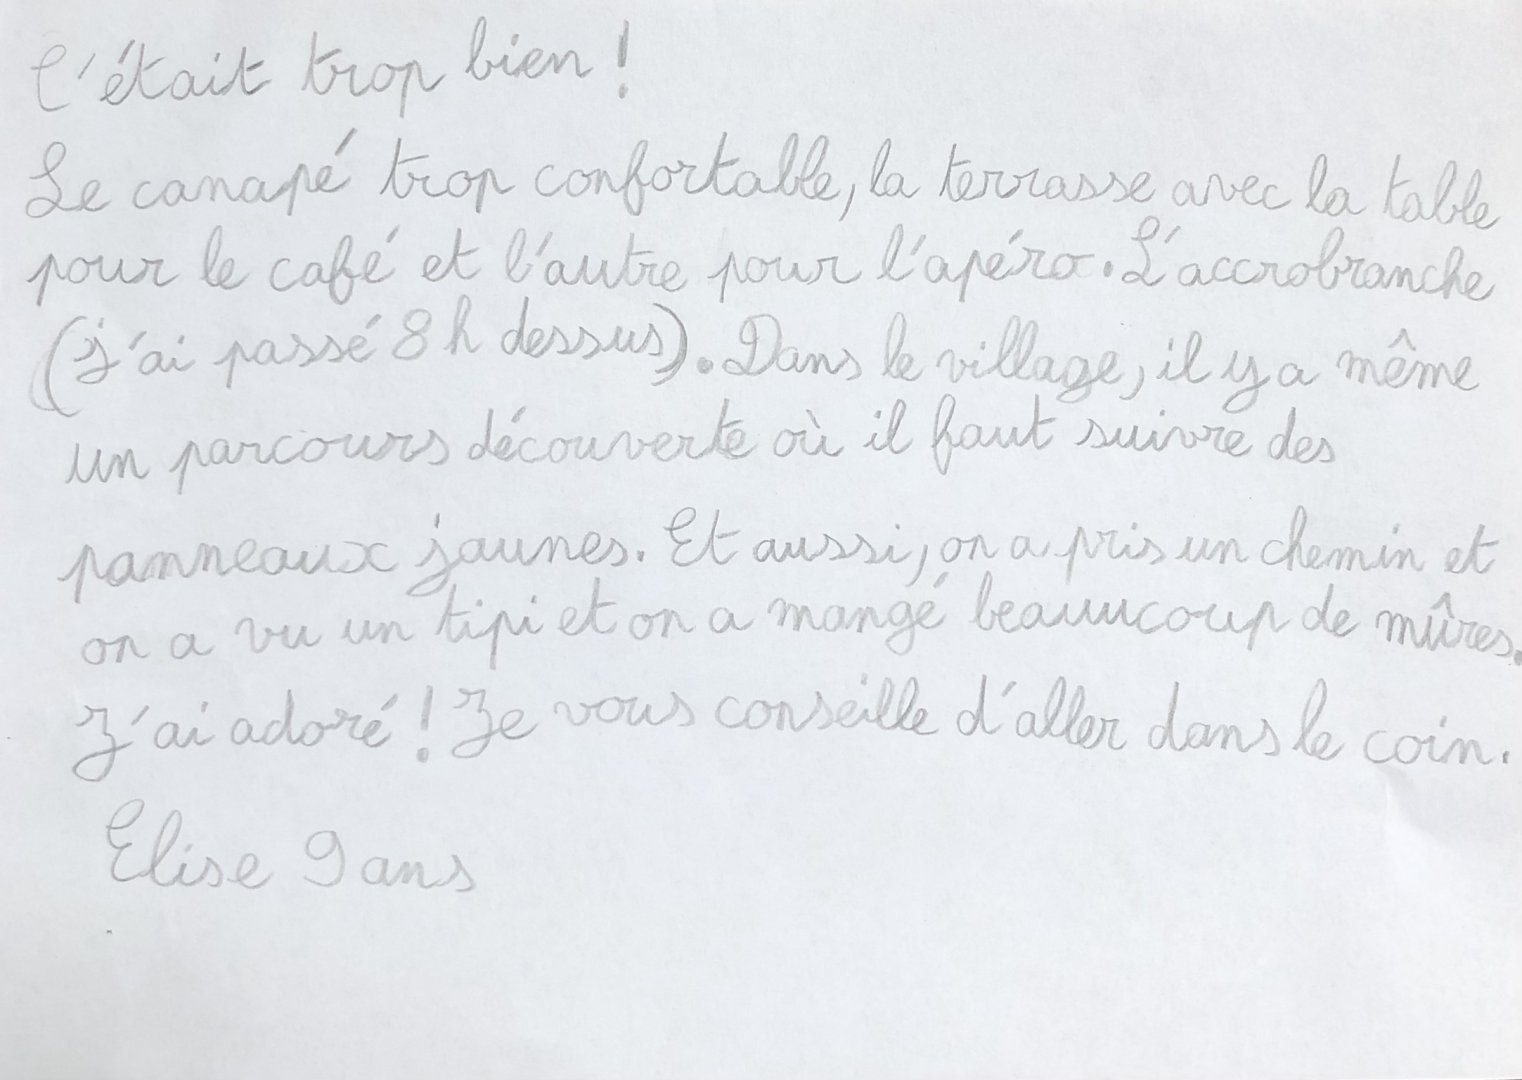 C'était trop bien !
Le canapé trop confortable, la terrasse avec la table
pour le café et l'autre pour l'apéro. L'accrobranche
(j'ai passé 8 h dessus). Dans le village, il y a même
un parcours découverte où il faut suivre des
panneaux jaunes. Et aussi, on a pris un chemin et
on a vu un tipi et on a mangé beaucoup de mûres.
J'ai adoré ! Je vous conseille d'aller dans le coin.
Elise 9 ans